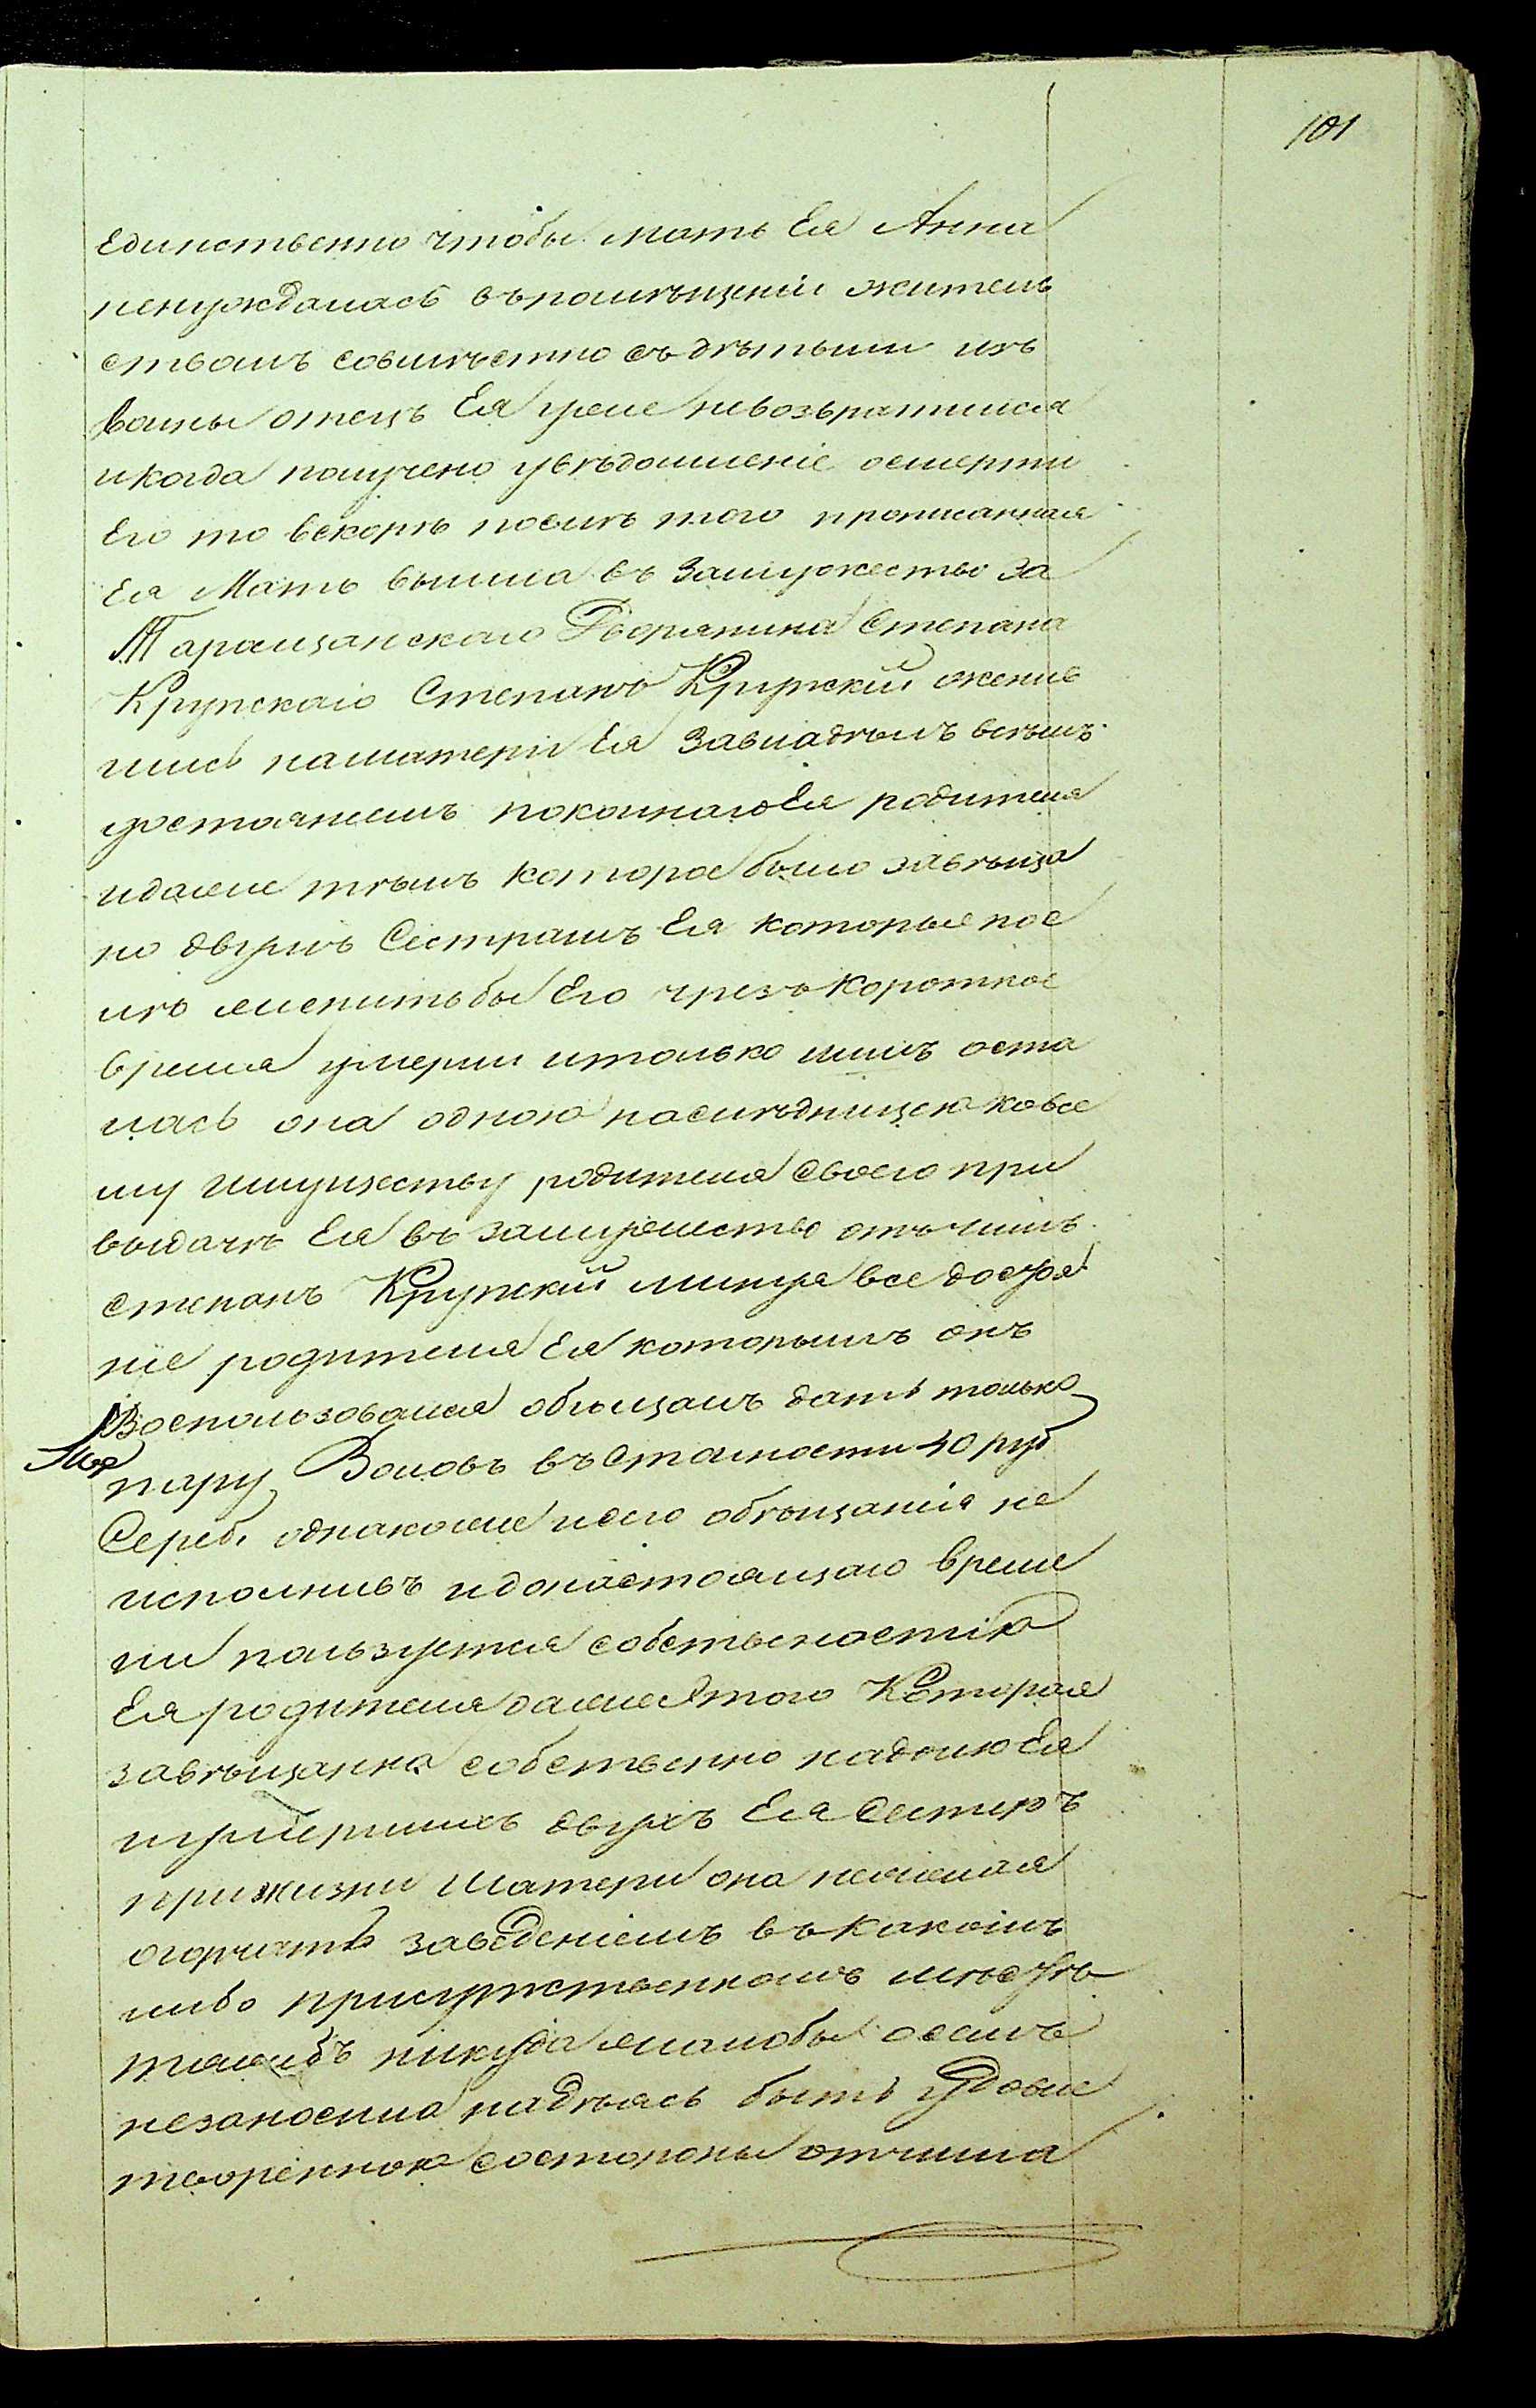 101
единственно чтобы мать Ея Анна
ненуждалась въ помѣщеніи житель
ствомъ совмѣстно съ дѣтьми изъ
Воины отецъ Ея уже невозвратился
и когда получено увѣдомленіе осмерти
Его то вскорѣ послѣ того прописанная
Ея Мать вышла въ Замужество За
Таращанскаго Дворянина Степана
Крупскаго Степанъ Крупскій женив
шись наматери Ея Завладѣлъ всѣмъ
достояніемъ покойнаго Ея родителя
идаже тѣмъ которое было завѣща
но двумъ Сестрамъ Ея которые пос
лѣ женитьбы Его чрезъ Короткое
время умерли итолько лишъ оста
лась она одною наслѣдницею ковсе
му имуществу родителя своего при
выдачѣ Ея въ замужество отъчимъ
Степанъ Крупскій минуя все достоя
ніе родителя Ея которымъ онъ
Воспользовался обѣщалъ дать только
пару Воловъ въ Стоимости 40 руб
Сереб. однакоже исего обѣщанія не
исполнивъ идонастоящаго време
ни пользуется собственностію
Ея родителя даже итого Которое
завѣщанно собственно надолю Ея
иумершихъ двухъ Ея сестеръ
прижизни Матери она нежелая
огорчать заведеніемъ въ какомъ
либо присутственномъ мѣстѣ
тяжбъ никуда жалобы осемъ
незаносила надѣясь быть Удовле
творенною состороны отчима